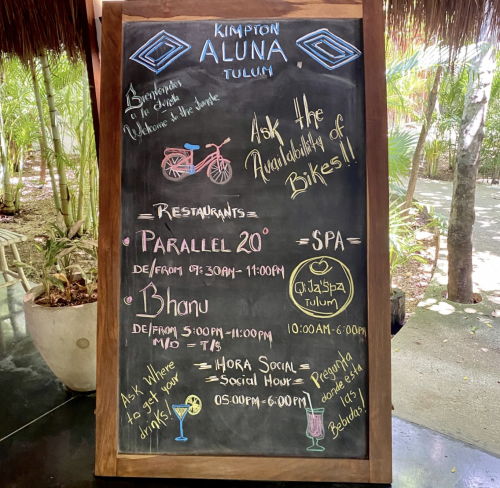 KIMPTON
ALUNA
TULUM
Bienvenidos
a la Jungla
Welcome to the Jungle
Ask the
Availability of
Bikes!!
RESTAURANTS
PARALLEL 20°
DE/FROM 07:30AM - 11:00PM
Bhanu
DE/FROM 5:00PM-11:00PM
M/D = T/S
SPA
Qi Ja' Spa
TULUM
10:00AM-6:00PM
HORA SOCIAL
SOCIAL HOUR
05:00PM-6:00PM
Ask Where
to get your
drinks!!
Pregunta
donde esta
las
Bebidas!